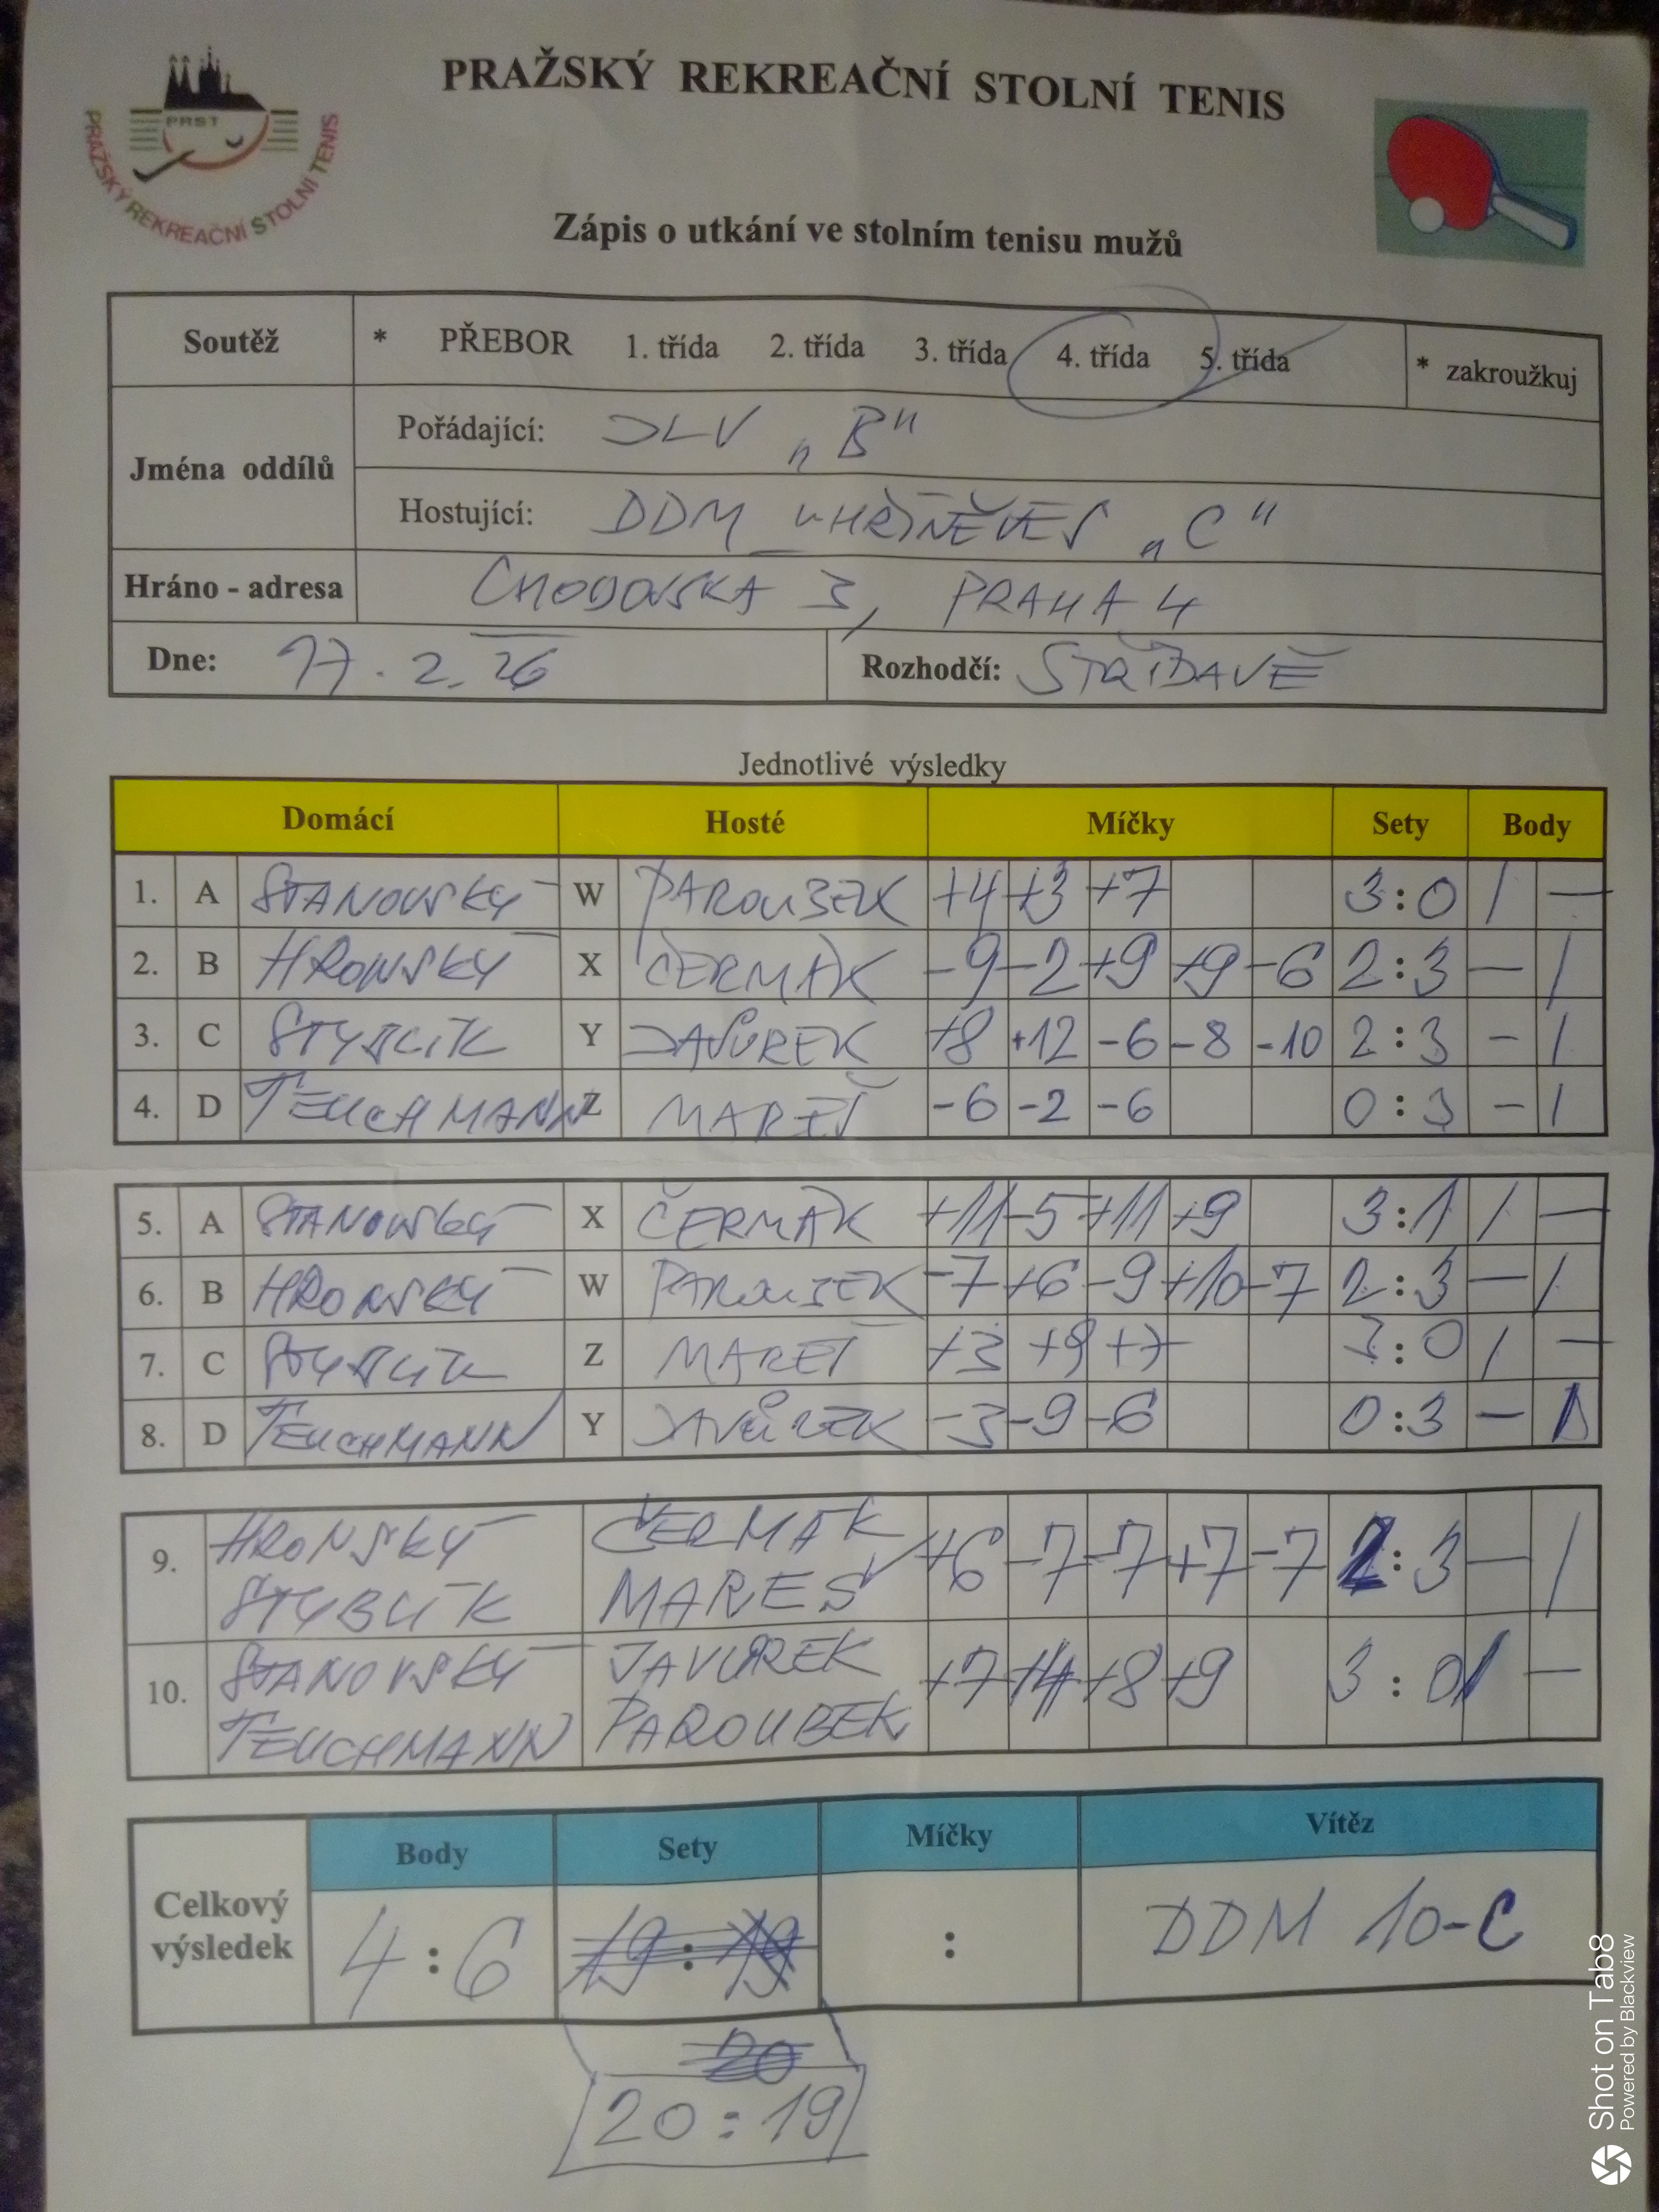 PRAŽSKÝ REKREAČNÍ STOLNÍ TENIS
PRST
PRAŽSKÝ REKREAČNÍ STOLNÍ TENIS
Zápis o utkání ve stolním tenisu mužů
Soutěž * PŘEBOR 1. třída 2. třída 3. třída 4. třída 5. třída * zakroužkuj
Jména oddílů
Pořádající: JLV „B"
Hostující: DDM UHŘÍNĚVES „C"
Hráno - adresa CHODOVSKÁ 3, PRAHA 4
Dne: 17.2.26 Rozhodčí: STŘÍDAVĚ
Jednotlivé výsledky
Domácí Hosté Míčky Sety Body
1. A STANOVSKÝ W PAROUBEK +4 +3 +7 3:0 1 —
2. B HRONSKÝ X ČERMÁK -9 -2 +9 +9 -6 2:3 — 1
3. C STYBLÍK Y JAVŮREK +8 +12 -6 -8 -10 2:3 - 1
4. D TEUCHMANN Z MAREŠ -6 -2 -6 0:3 - 1
5. A STANOVSKÝ X ČERMÁK +11 -5 +11 +9 3:1 1 —
6. B HRONSKÝ W PAROUBEK -7 +6 -9 +10 -7 2:3 — 1
7. C STYBLÍK Z MAREŠ +3 +9 +7 3:0 1 —
8. D TEUCHMANN Y JAVŮREK -3 -9 -6 0:3 — 1
9. HRONSKÝ ČERMÁK +6 -7 -7 +7 -7 2:3 — 1
STYBLÍK MAREŠ
10. STANOVSKÝ JAVŮREK +7 +8 +9 3:0 1 —
TEUCHMANN PAROUBEK
Celkový výsledek
Body Sety Míčky Vítěz
4:6 19:19 : DDM 10-C
20
20:19
Shot on Tab8
Powered by Blackview